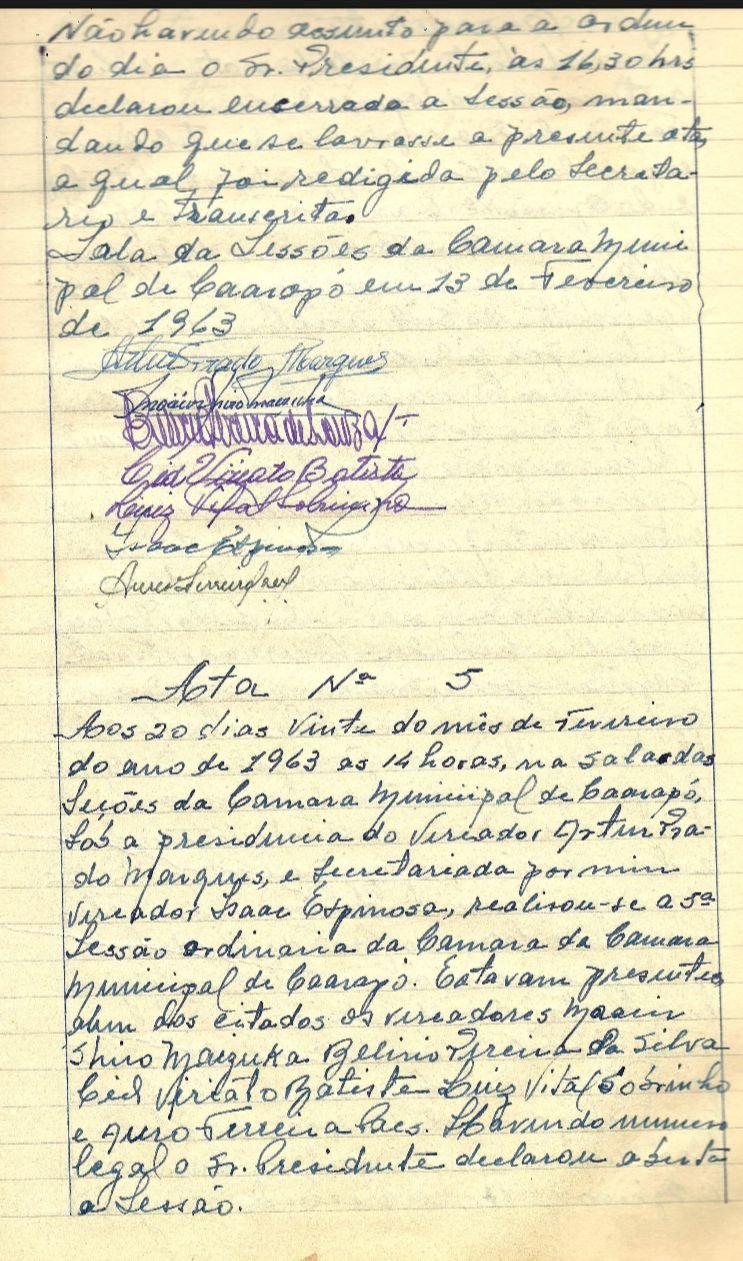 Não havendo assunto para a ordem
do dia o Sr. Presidente, às 16,30 hrs
declarou encerrada a Sessão, man-
dando que se lavrasse a presente ata,
a qual foi redigida pelo Secreta-
rio e transcrita.
Sala da Sessões da Camara Muni
pal de Caarapó em 13 de Fevereiro
de 1963
Artur Prado Marques
Cid Viriato Batista
Luiz Vital Sobrinho
Isaac Espinosa
Ata Nª 5
Aos 20 dias vinte do mês de Fevereiro
do ano de 1963 as 14 horas, na sala das
Seções da Camara Municipal de Caarapó,
Sob a presidencia do Vereador Artur Pra-
do Marques, e Secretariada por mim
Vereador Isaac Espinosa, realisou-se a 5ª
Sessão ordinaria da Camara da Camara
Municipal de Caarapó. Estavam presentes
alem dos citados os vereadores
Shiro Belirio Pereira da Silva
Cid Viriato Batista Luiz Vital Sobrinho
e Auro Ferreira Paes. Havendo numero
legal o Sr. Presidente declarou aberta
a Sessão.